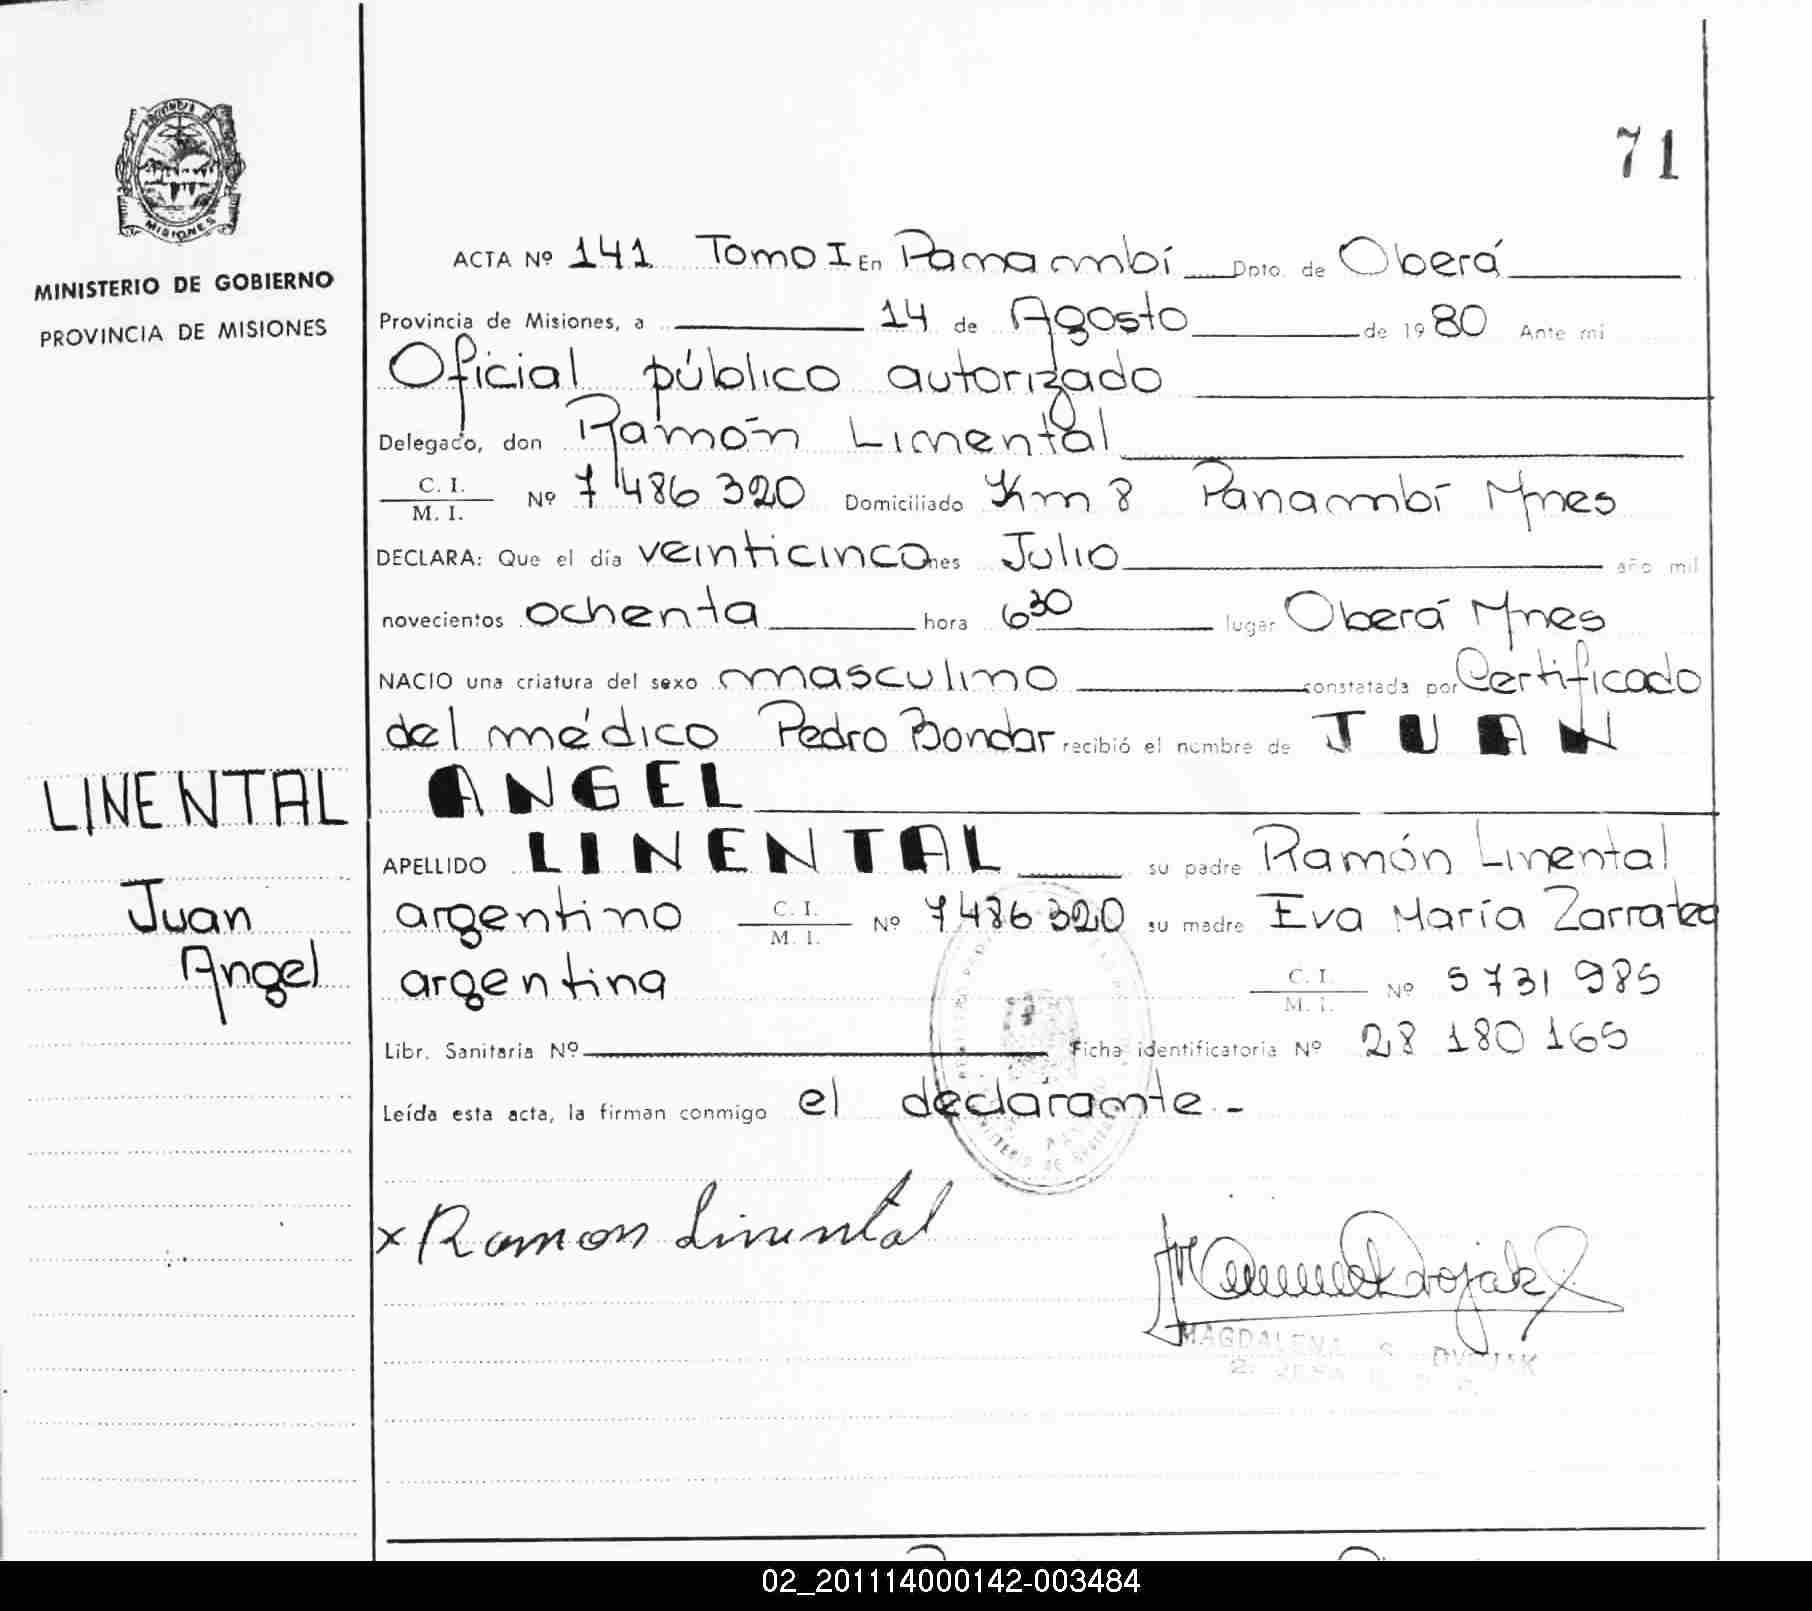 71
MISIONES
MINISTERIO DE GOBIERNO
PROVINCIA DE MISIONES
ACTA Nº 141 Tomo I En Panambí Dpto. de Oberá
Provincia de Misiones, a 14 de Agosto de 1980 Ante mi
Oficial público autorizado
Delegado, don Ramón Linental
C. I.
M. I.
Nº 7 486 320 Domiciliado Km 8 Panambí Mnes
DECLARA: Que el día veinticinco mes Julio año mil
novecientos ochenta hora 6 30 lugar Oberá Mnes
NACIO una criatura del sexo masculino constatada por Certificado
del médico Pedro Bondar recibió el nombre de JUAN
ANGEL
LINENTAL
Juan
Angel
APELLIDO LINENTAL su padre Ramón Linental
argentino C. I. M. I. Nº 7486320 su madre Eva María Zarratea
argentina C. I. M. I. Nº 5731985
Libr. Sanitaria Nº Ficha identificatoria Nº 28 180 165
Leída esta acta, la firman conmigo el declarante.-
x Ramon Linental
MAGDALENA S. DVOJAK
02_201114000142-003484